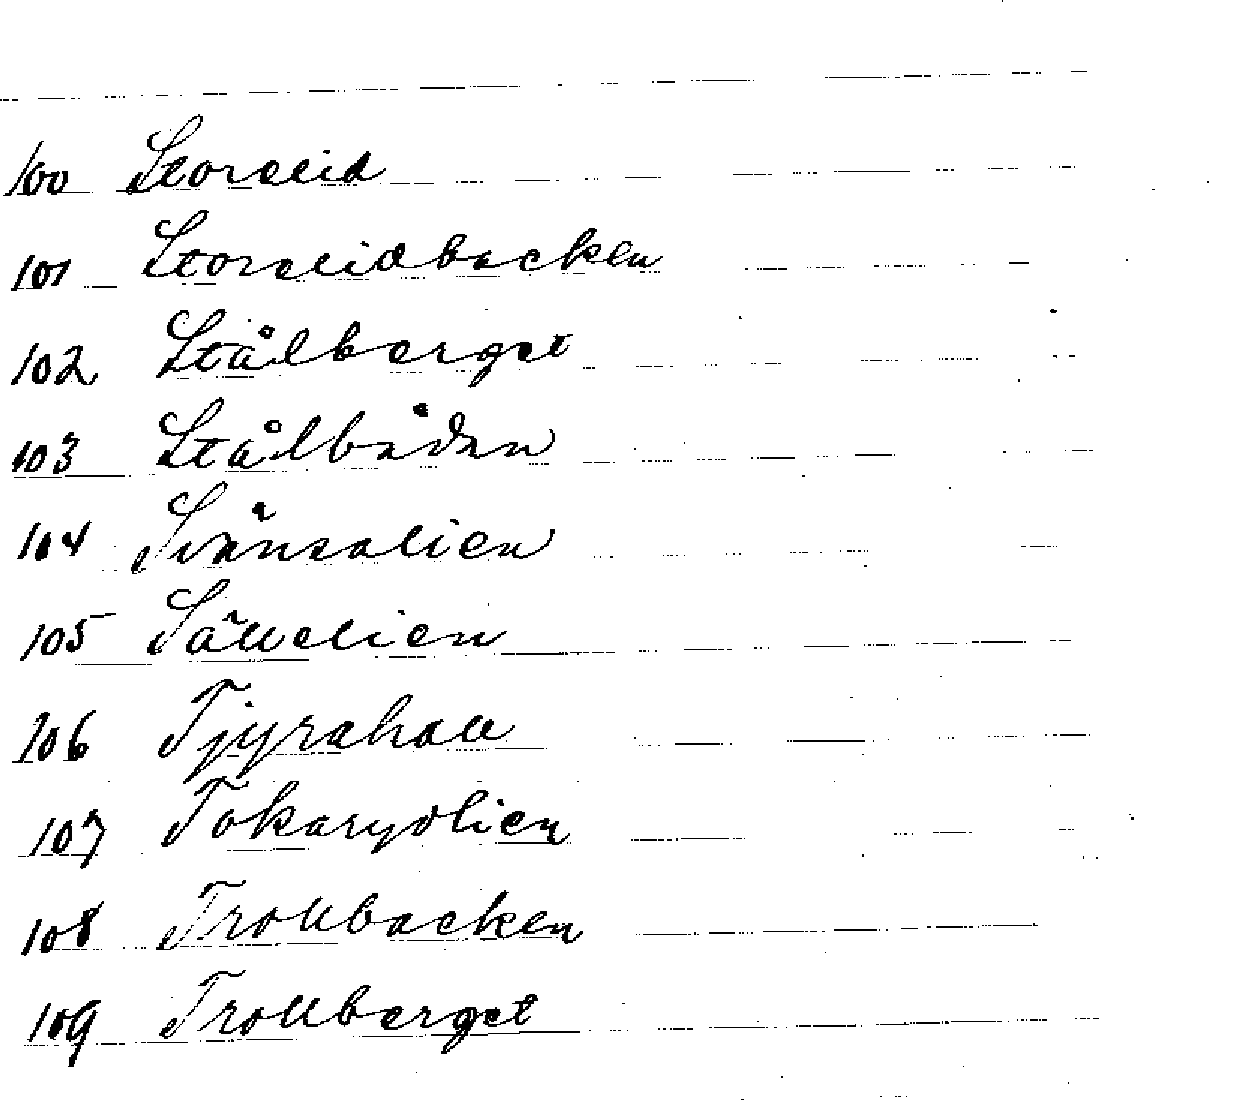 100 Storelid
101 Storelidbacken
102 Stålberget
103 Stålbådan
104 Svänsalien
105 Sällelien
106 Tjyrahall
107 Tokarydlien
108 Trollbacken
109 Trollberget